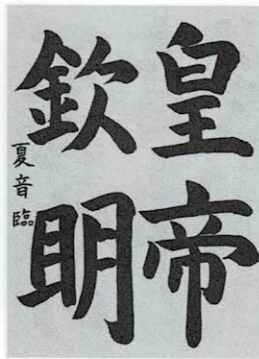 皇帝
欽明
夏音臨